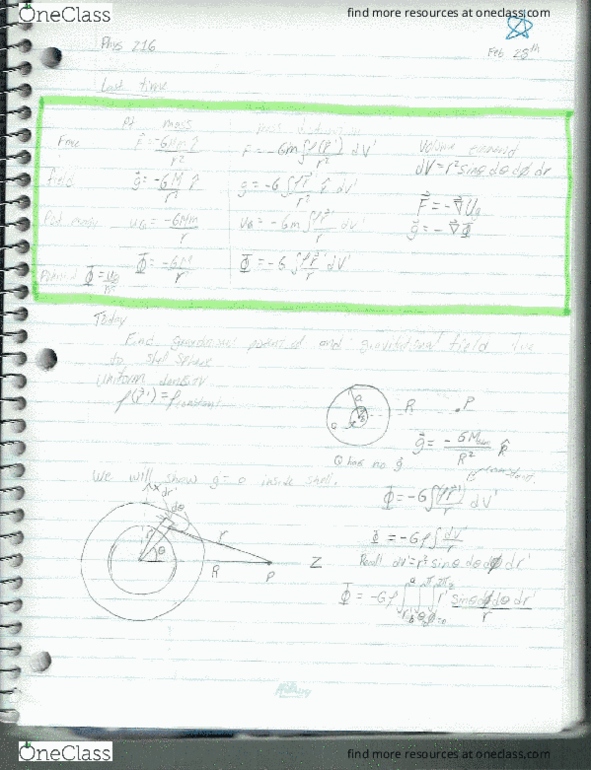 OneClass
find more resources at oneclass.com
Phys 216
Feb 28th
Last time
pt mass
Force F = -GMm r̂ / r²
F = -Gm ∫ρ(r') / r² dV'
Volume
dV = r² sinθ dθ dϕ dr
field g = -GM r̂ / r²
g = -G ∫ρr' / r² r̂ dV'
F = -∇U_g
U_G = -GMm / r
U_G = -Gm ∫ρr' / r dV'
g = -∇Φ
Φ = U_G / m
Φ = -GM / r
Φ = -G ∫ρr' / r dV'
Today
Find gravitational potential and gravitational field due
to shell sphere
Uniform density
ρ(r') = ρ(constant)
a
R
P
g = -GM / R² R̂
Q has no g
We will show g=0 inside shell.
Φ = -G ∫ρ(r') / r dV'
dr'
dθ
Φ = -Gρ ∫dV' / r
r
θ
R
P
Z
Recall dV' = r'² sinθ dθ dϕ dr'
Φ = -Gρ ∫∫∫ r' sinθ dϕ dθ dr' / r
OneClass
find more resources at oneclass.com